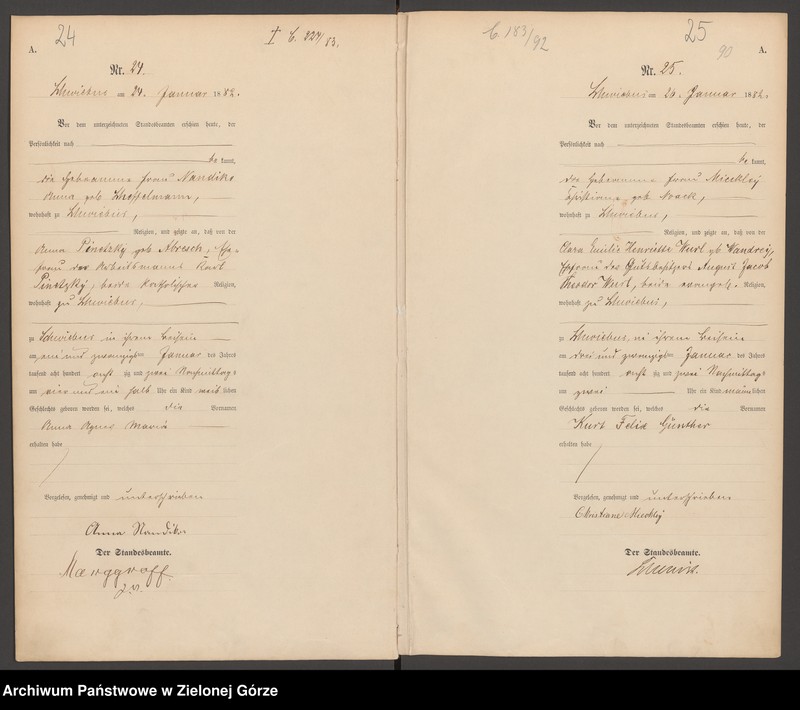 24
† C. 227/83.
A.
Nr. 24.
Schwiebus am 24. Januar 1882.
Vor dem unterzeichneten Standesbeamten erschien heute, der
Persönlichkeit nach
be kannt,
die Hebeamme Frau Nandike
Anna geb.
wohnhaft zu Schwiebus,
Religion, und zeigte an, daß von der
Anna Pinetzky geb. Abresch, Ehe-
frau des Arbeitsmanns Karl
Pinetzky, beide katholischer Religion,
wohnhaft zu Schwiebus,
zu Schwiebus in ihrem Beisein
am ein und zwanzigsten Januar des Jahres
tausend acht hundert acht zig und zwei Nachmittags
um vier und ein halb Uhr ein Kind weib lichen
Geschlechts geboren worden sei, welches die Vornamen
Anna Agnes Maria
erhalten habe
Vorgelesen, genehmigt und unterschrieben
Anna Nandike
Der Standesbeamte.
Marggraff.
C. 183/92
25
90
A.
Nr. 25.
Schwiebus am 24. Januar 1882.
Vor dem unterzeichneten Standesbeamten erschien heute, der
Persönlichkeit nach
be kannt,
die Hebeamme Frau Mieckley
Christiane geb. Noack,
wohnhaft zu Schwiebus,
Religion, und zeigte an, daß von der
Clara Emilie Henriette Wurl geb. Wandrey,
Ehefrau des Gutsbesitzers August Jacob
Theodor Wurl, beide evangel. Religion,
wohnhaft zu Schwiebus,
zu Schwiebus, in ihrem Beisein
am drei und zwanzigsten Januar des Jahres
tausend acht hundert acht zig und zwei Nachmittags
um zwei Uhr ein Kind männ lichen
Geschlechts geboren worden sei, welches die Vornamen
Kurt Felix Günther
erhalten habe
Vorgelesen, genehmigt und unterschrieben
Christiane Mieckley
Der Standesbeamte.
Archiwum Państwowe w Zielonej Górze